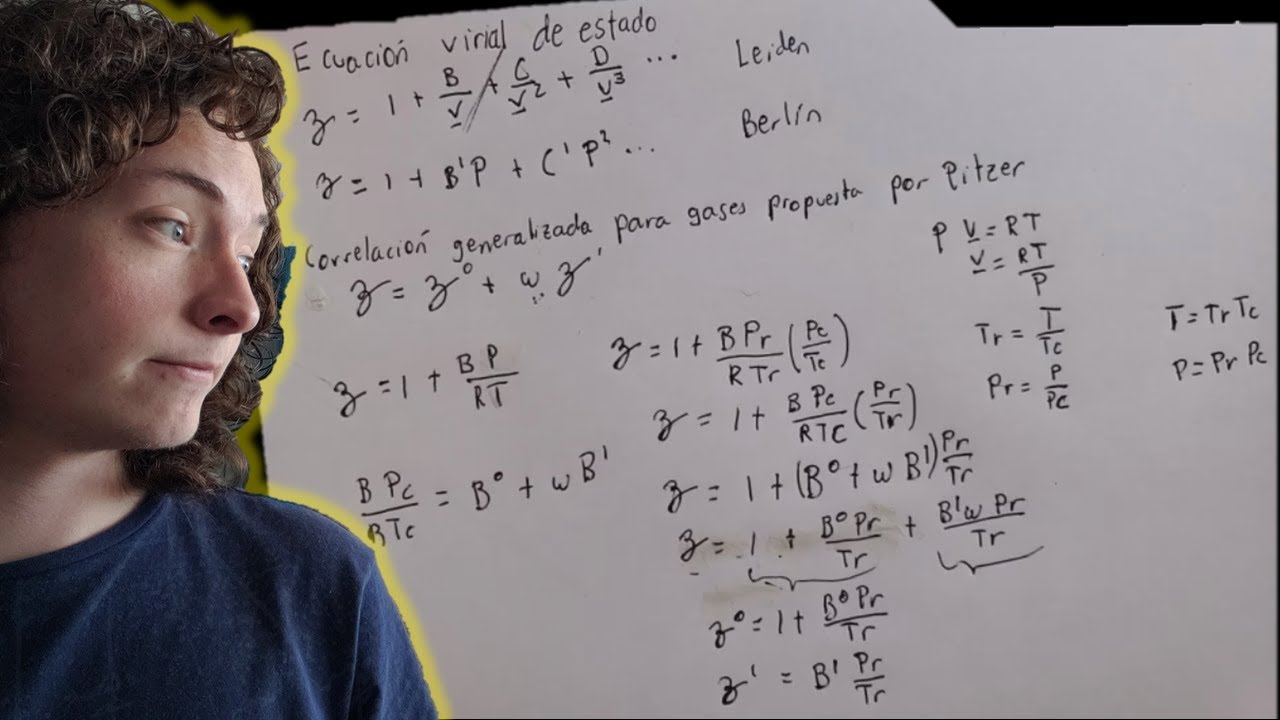 Ecuación virial de estado
z = 1 + B/V + C/V² + D/V³ ... Leiden
z = 1 + B'P + C'P² ... Berlín
Correlación generalizada para gases propuesta por Pitzer
z = z⁰ + ω z'
P V = RT
V = RT/P
z = 1 + BP/RT
z = 1 + B Pr/R Tr (Pc/Tc)
Tr = T/Tc
T = Tr Tc
z = 1 + B Pc/RTC (Pr/Tr)
Pr = P/Pc
P = Pr Pc
B Pc/RTc = B⁰ + ω B'
z = 1 + (B⁰ + ω B') Pr/Tr
z = 1 + B⁰ Pr/Tr + B'ω Pr/Tr
z⁰ = 1 + B⁰ Pr/Tr
z' = B' Pr/Tr